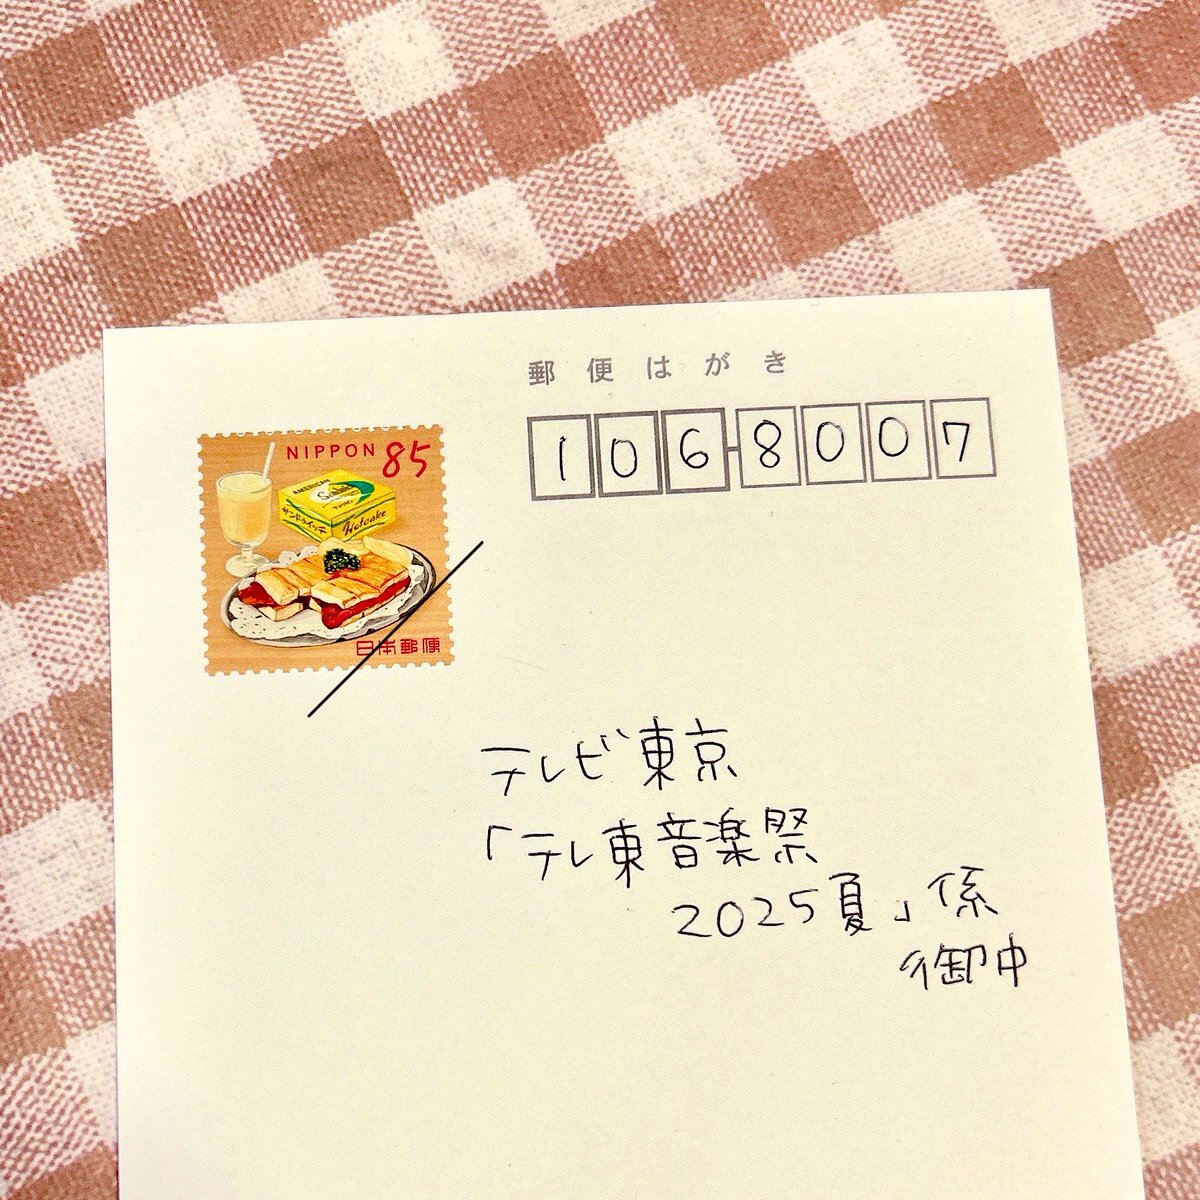 郵便はがき
106-8007
NIPPON 85
AMERICAN
サンドウイッチ
Hotcake
日本郵便
テレビ東京
「テレ東音楽祭
2025夏」係
御中